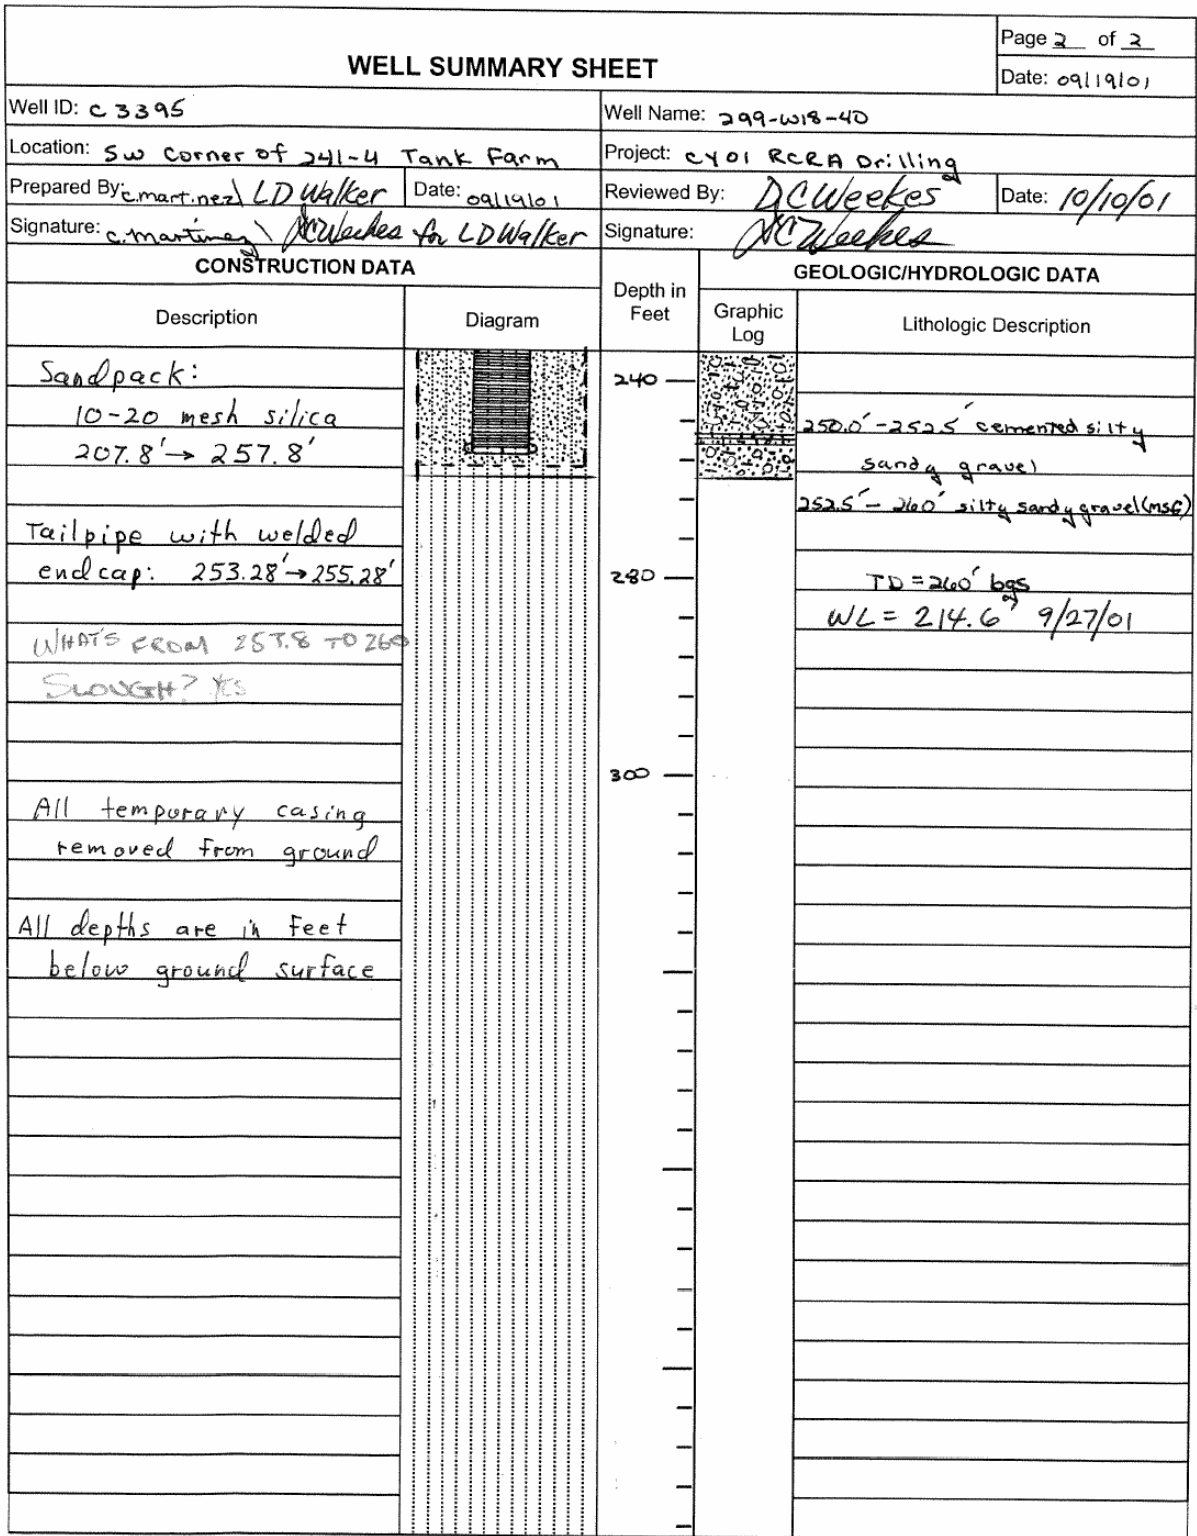 WELL SUMMARY SHEET
Page 2 of 2
Date: 09/19/01
Well ID: C3395
Well Name: 299-W18-40
Location: SW Corner of 241-U Tank Farm
Project: CY01 RCRA Drilling
Prepared By: C. Martinez\ LD Walker
Date: 09/19/01
Reviewed By: DC Weekes
Date: 10/10/01
Signature: C. Martinez\ DC Weekes for LD Walker
Signature: DC Weekes
CONSTRUCTION DATA
Depth in
Feet
GEOLOGIC/HYDROLOGIC DATA
Description
Diagram
Graphic
Log
Lithologic Description
Sandpack:
10-20 mesh silica
207.8' → 257.8'
Tailpipe with welded
end cap: 253.28' → 255.28'
WHAT'S FROM 257.8 TO 260
SLOUGH? YES
All temporary casing
removed from ground
All depths are in feet
below ground surface
240
280
300
250.0' - 252.5' cemented silty
sandy gravel
252.5' - 260' silty sandy gravel (msG)
TD = 260' bgs
WL = 214.6' 9/27/01